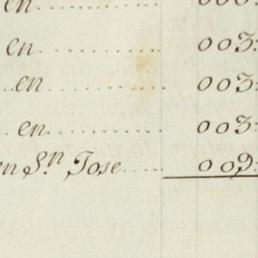 en ........ 000:
en ............ 003:
..en ............ 003:
. en ............ 003:
en Sn. Jose ..... 009: